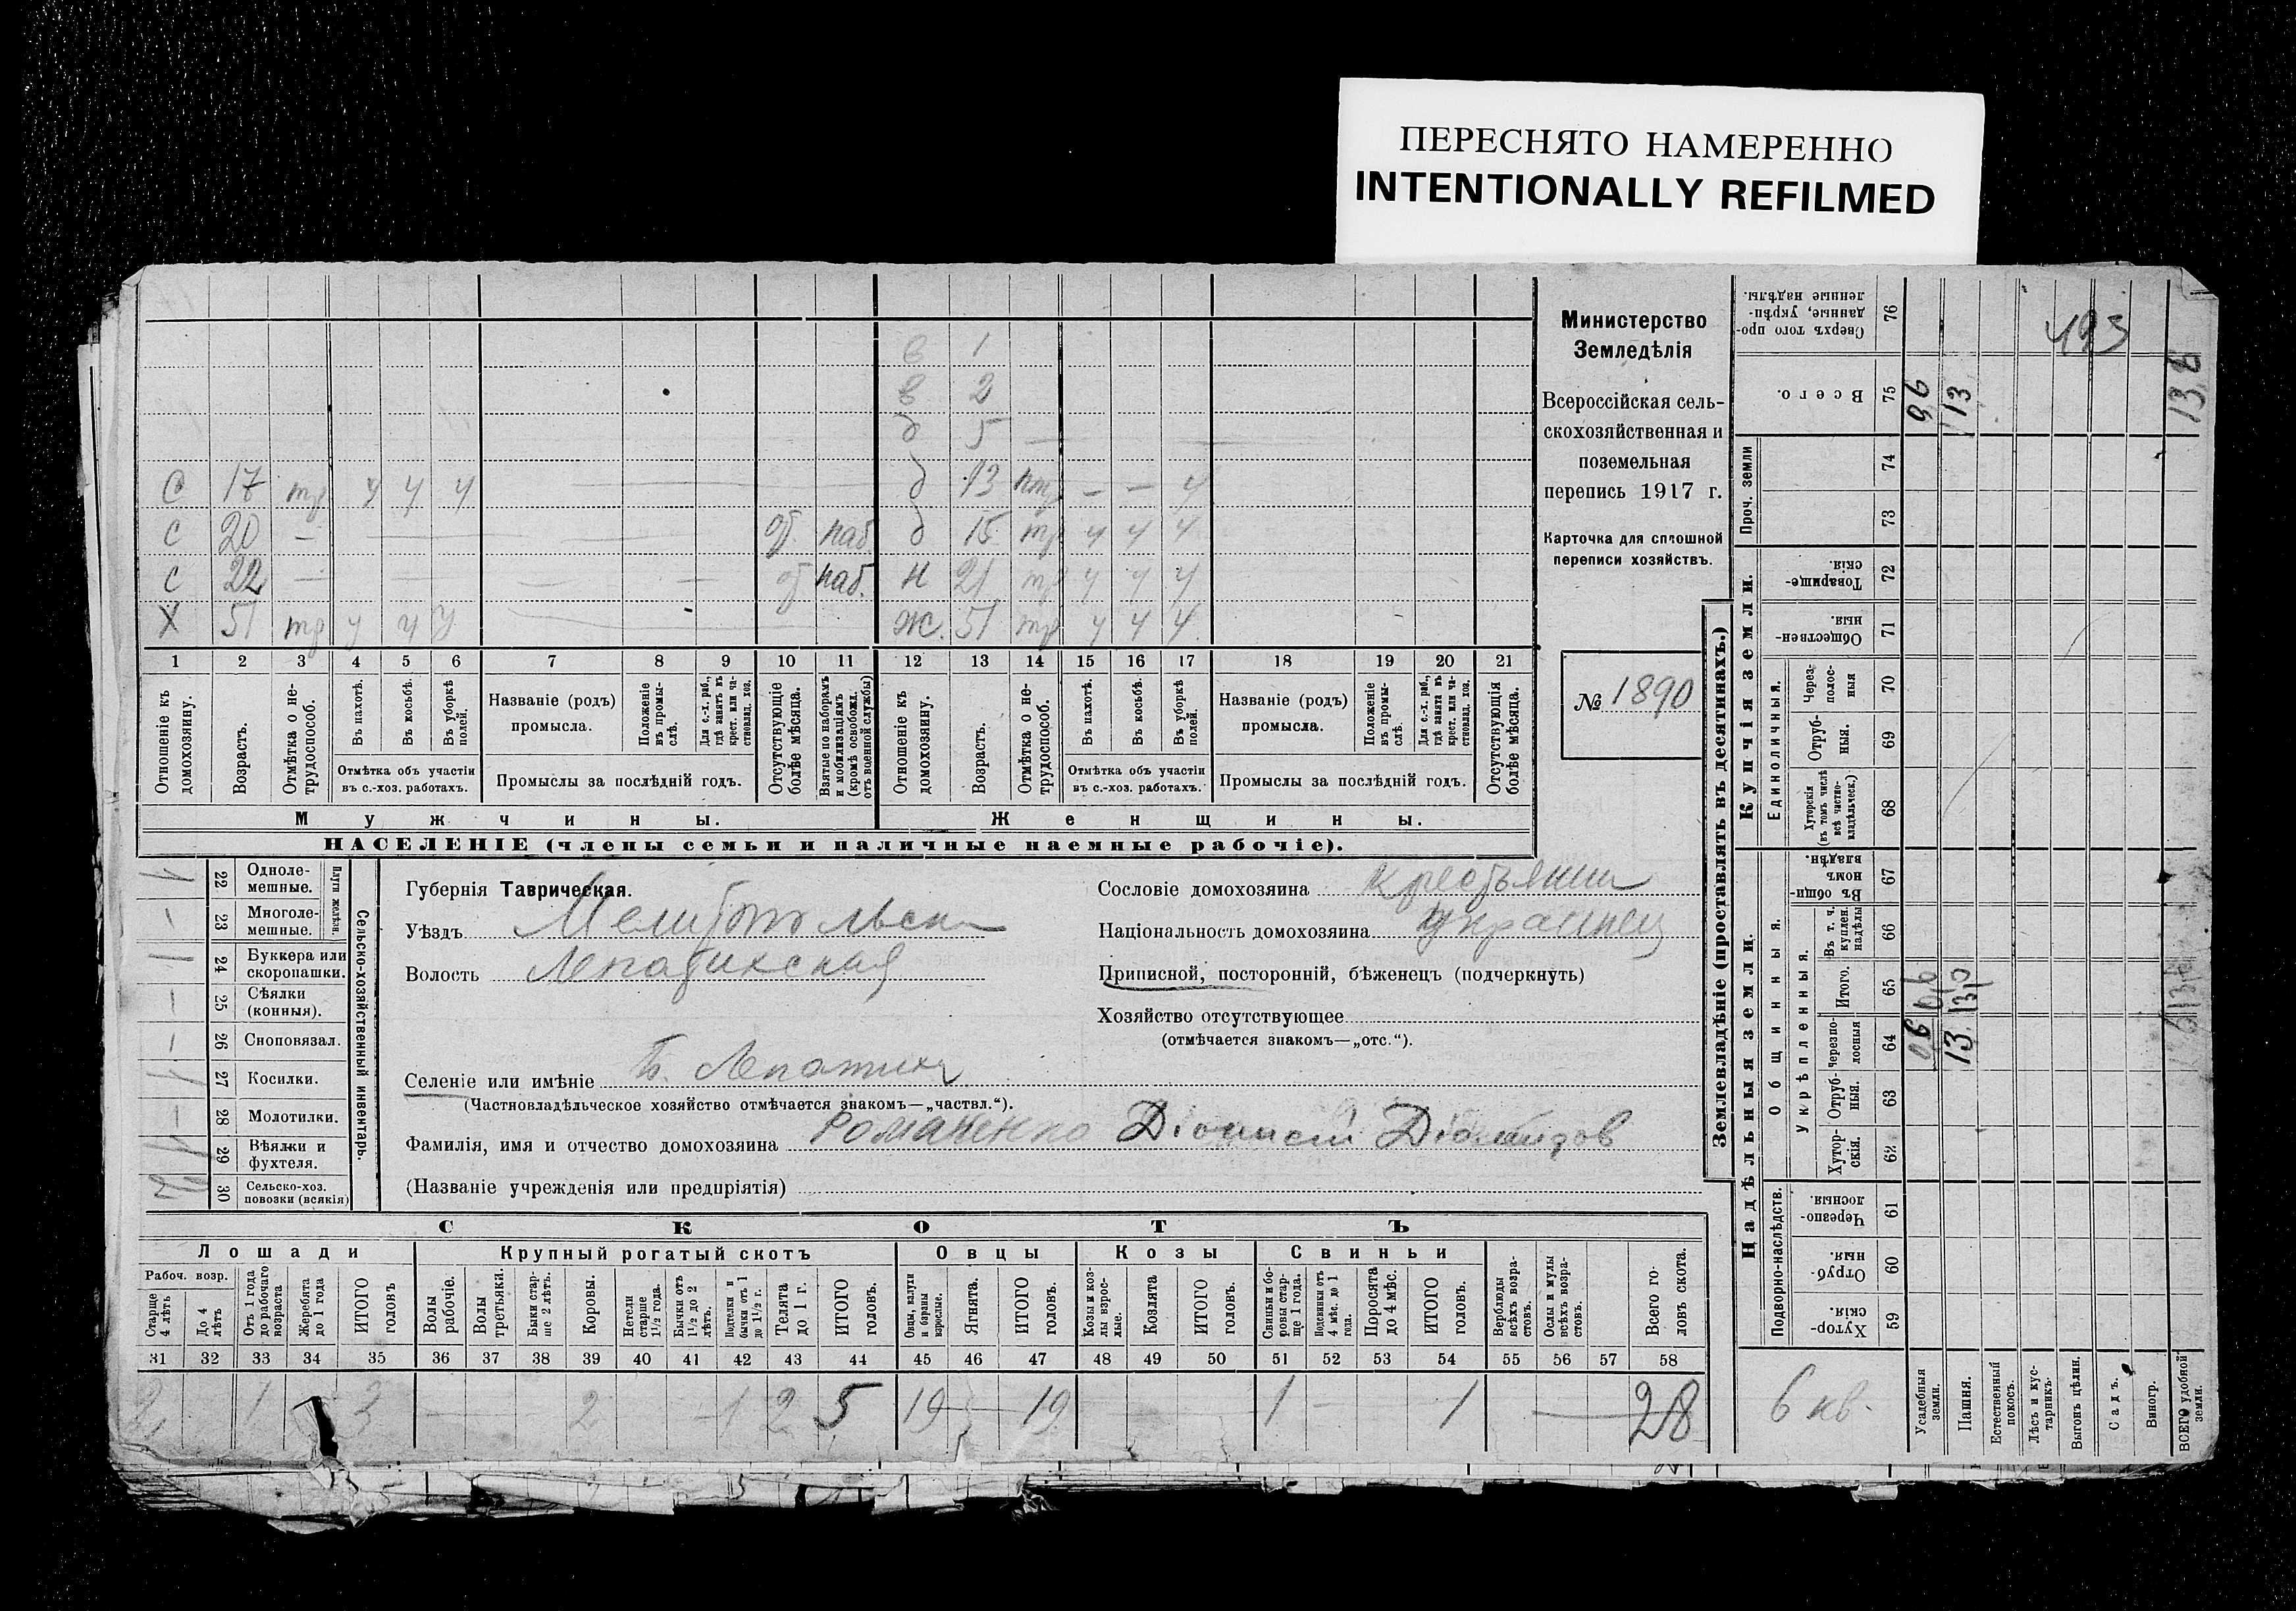 ПЕРЕСНЯТО НАМЕРЕННО
INTENTIONALLY REFILMED
в 1
в 2
д 5
С 17 тр у у у д 13 птр — — у
С 20 — от. наб. д 15 тр у у у
С 22 — от наб. н 21 тр у у у
Х 51 тр у у у ж. 51 тр у у у
1 2 3 4 5 6 7 8 9 10 11 12 13 14 15 16 17 18 19 20 21
Отношеніе къ домохозяину.
Возрастъ.
Отмѣтка о нетрудоспособ.
Въ пахотѣ.
Въ косьбѣ.
Въ уборкѣ полей.
Отмѣтка объ участіи въ с.-хоз. работахъ.
Названіе (родъ) промысла.
Положеніе въ промыслѣ.
Для с.-х. раб., гдѣ занятъ въ крест. или частновлад. хоз.
Промыслы за послѣдній годъ.
Отсутствующіе болѣе мѣсяца.
Взятые по наборамъ и мобилизаціямъ (кромѣ освобожд. отъ военной службы)
Отношеніе къ домохозяину.
Возрастъ.
Отмѣтка о нетрудоспособ.
Въ пахотѣ.
Въ косьбѣ.
Въ уборкѣ полей.
Отмѣтка объ участіи въ с.-хоз. работахъ.
Названіе (родъ) промысла.
Положеніе въ промыслѣ.
Для с.-х. раб., гдѣ занятъ въ крест. или частновлад. хоз.
Промыслы за послѣдній годъ.
Отсутствующія болѣе мѣсяца.
Мужчины. Женщины.
НАСЕЛЕНІЕ (члены семьи и наличные наемные рабочіе).
Министерство
Земледѣлія
Всероссійская сель-
скохозяйственная и
поземельная
перепись 1917 г.
Карточка для сплошной
переписи хозяйствъ.
№ 1890
Сельско-хозяйственный инвентарь.
Плуги желѣзн.
22 Одноле-
мешные. 1
23 Многоле-
мешные. —
24 Буккера или
скоропашки. 1
25 Сѣялки
(конныя). —
26 Сноповязал. —
27 Косилки. 1
28 Молотилки. —
29 Вѣялки и
фухтеля. 1
30 Сельско-хоз.
повозки (всякія) 2
Губернія Таврическая.
Уѣздъ Мелитопольск
Волость Лепатихская
Селеніе или имѣніе Б. Лепатиха
(Частновладѣльческое хозяйство отмѣчается знакомъ—„частвл.“).
Фамилія, имя и отчество домохозяина Романенко Діонисій Діомидов
(Названіе учрежденія или предпріятія)
Сословіе домохозяина крестьянин
Національность домохозяина украинец
Приписной, посторонній, бѣженецъ (подчеркнуть)
Хозяйство отсутствующее
(отмѣчается знакомъ—„отс.“).
СКОТЪ
Лошади Крупный рогатый скотъ Овцы Козы Свиньи
Рабоч. возр.
Старше 4 лѣтъ
До 4 лѣтъ
Отъ 1 года до рабочаго возраста
Жеребята до 1 года
ИТОГО головъ
Волы рабочіе.
Волы третьяки.
Быки старше 2 лѣтъ.
Коровы.
Нетели старше 1½ года.
Бычки отъ 1½ до 2 лѣтъ.
Подтелки и бычки отъ 1 до 1½ г.
Телята до 1 г.
ИТОГО головъ.
Овцы, валухи и бараны взрослые.
Ягнята.
ИТОГО головъ.
Козы и козлы взрослые.
Козлята
ИТОГО головъ.
Свиньи и боровы старше 1 года.
Подсвинки отъ 4 мѣс. до 1 года.
Поросята до 4 мѣс.
ИТОГО головъ.
Верблюды всѣхъ возрастовъ.
Ослы и мулы всѣхъ возрастовъ.
Всего головъ скота.
31 32 33 34 35 36 37 38 39 40 41 42 43 44 45 46 47 48 49 50 51 52 53 54 55 56 57 58
2 1 3 — 2 1 2 5 19 19 1 — 1 — 28
Землевладѣніе (проставлять въ десятинахъ.)
Купчія земли.
Надѣльныя земли.
76 Сверхъ того проданные, укрѣпленные надѣлы.
75 Всего.
Проч. земли
74
73
72 Товарищескія.
71 Общественныя.
Единоличныя.
70 Черезполосныя
69 Отрубныя.
68 Хуторскія (въ томъ числѣ всѣ частновладѣльческ.)
67 Въ общинномъ владѣн.
Общинныя.
Укрѣпленныя.
66 Въ т. ч. куплен. надѣлы
65 Итого.
64 Черезполосныя
63 Отрубныя.
62 Хуторскія.
Подворно-наслѣдств.
61 Черезполосныя
60 Отрубныя.
59 Хуторскія.
493
13
13,6
0,6
13,0
0,6
13
6 кв.
Усадебныя земли.
Пашня.
Естественный покосъ.
Лѣсъ и кустарникъ.
Выгонъ цѣлин.
Садъ.
Виногр.
ВСЕГО удобной земли.